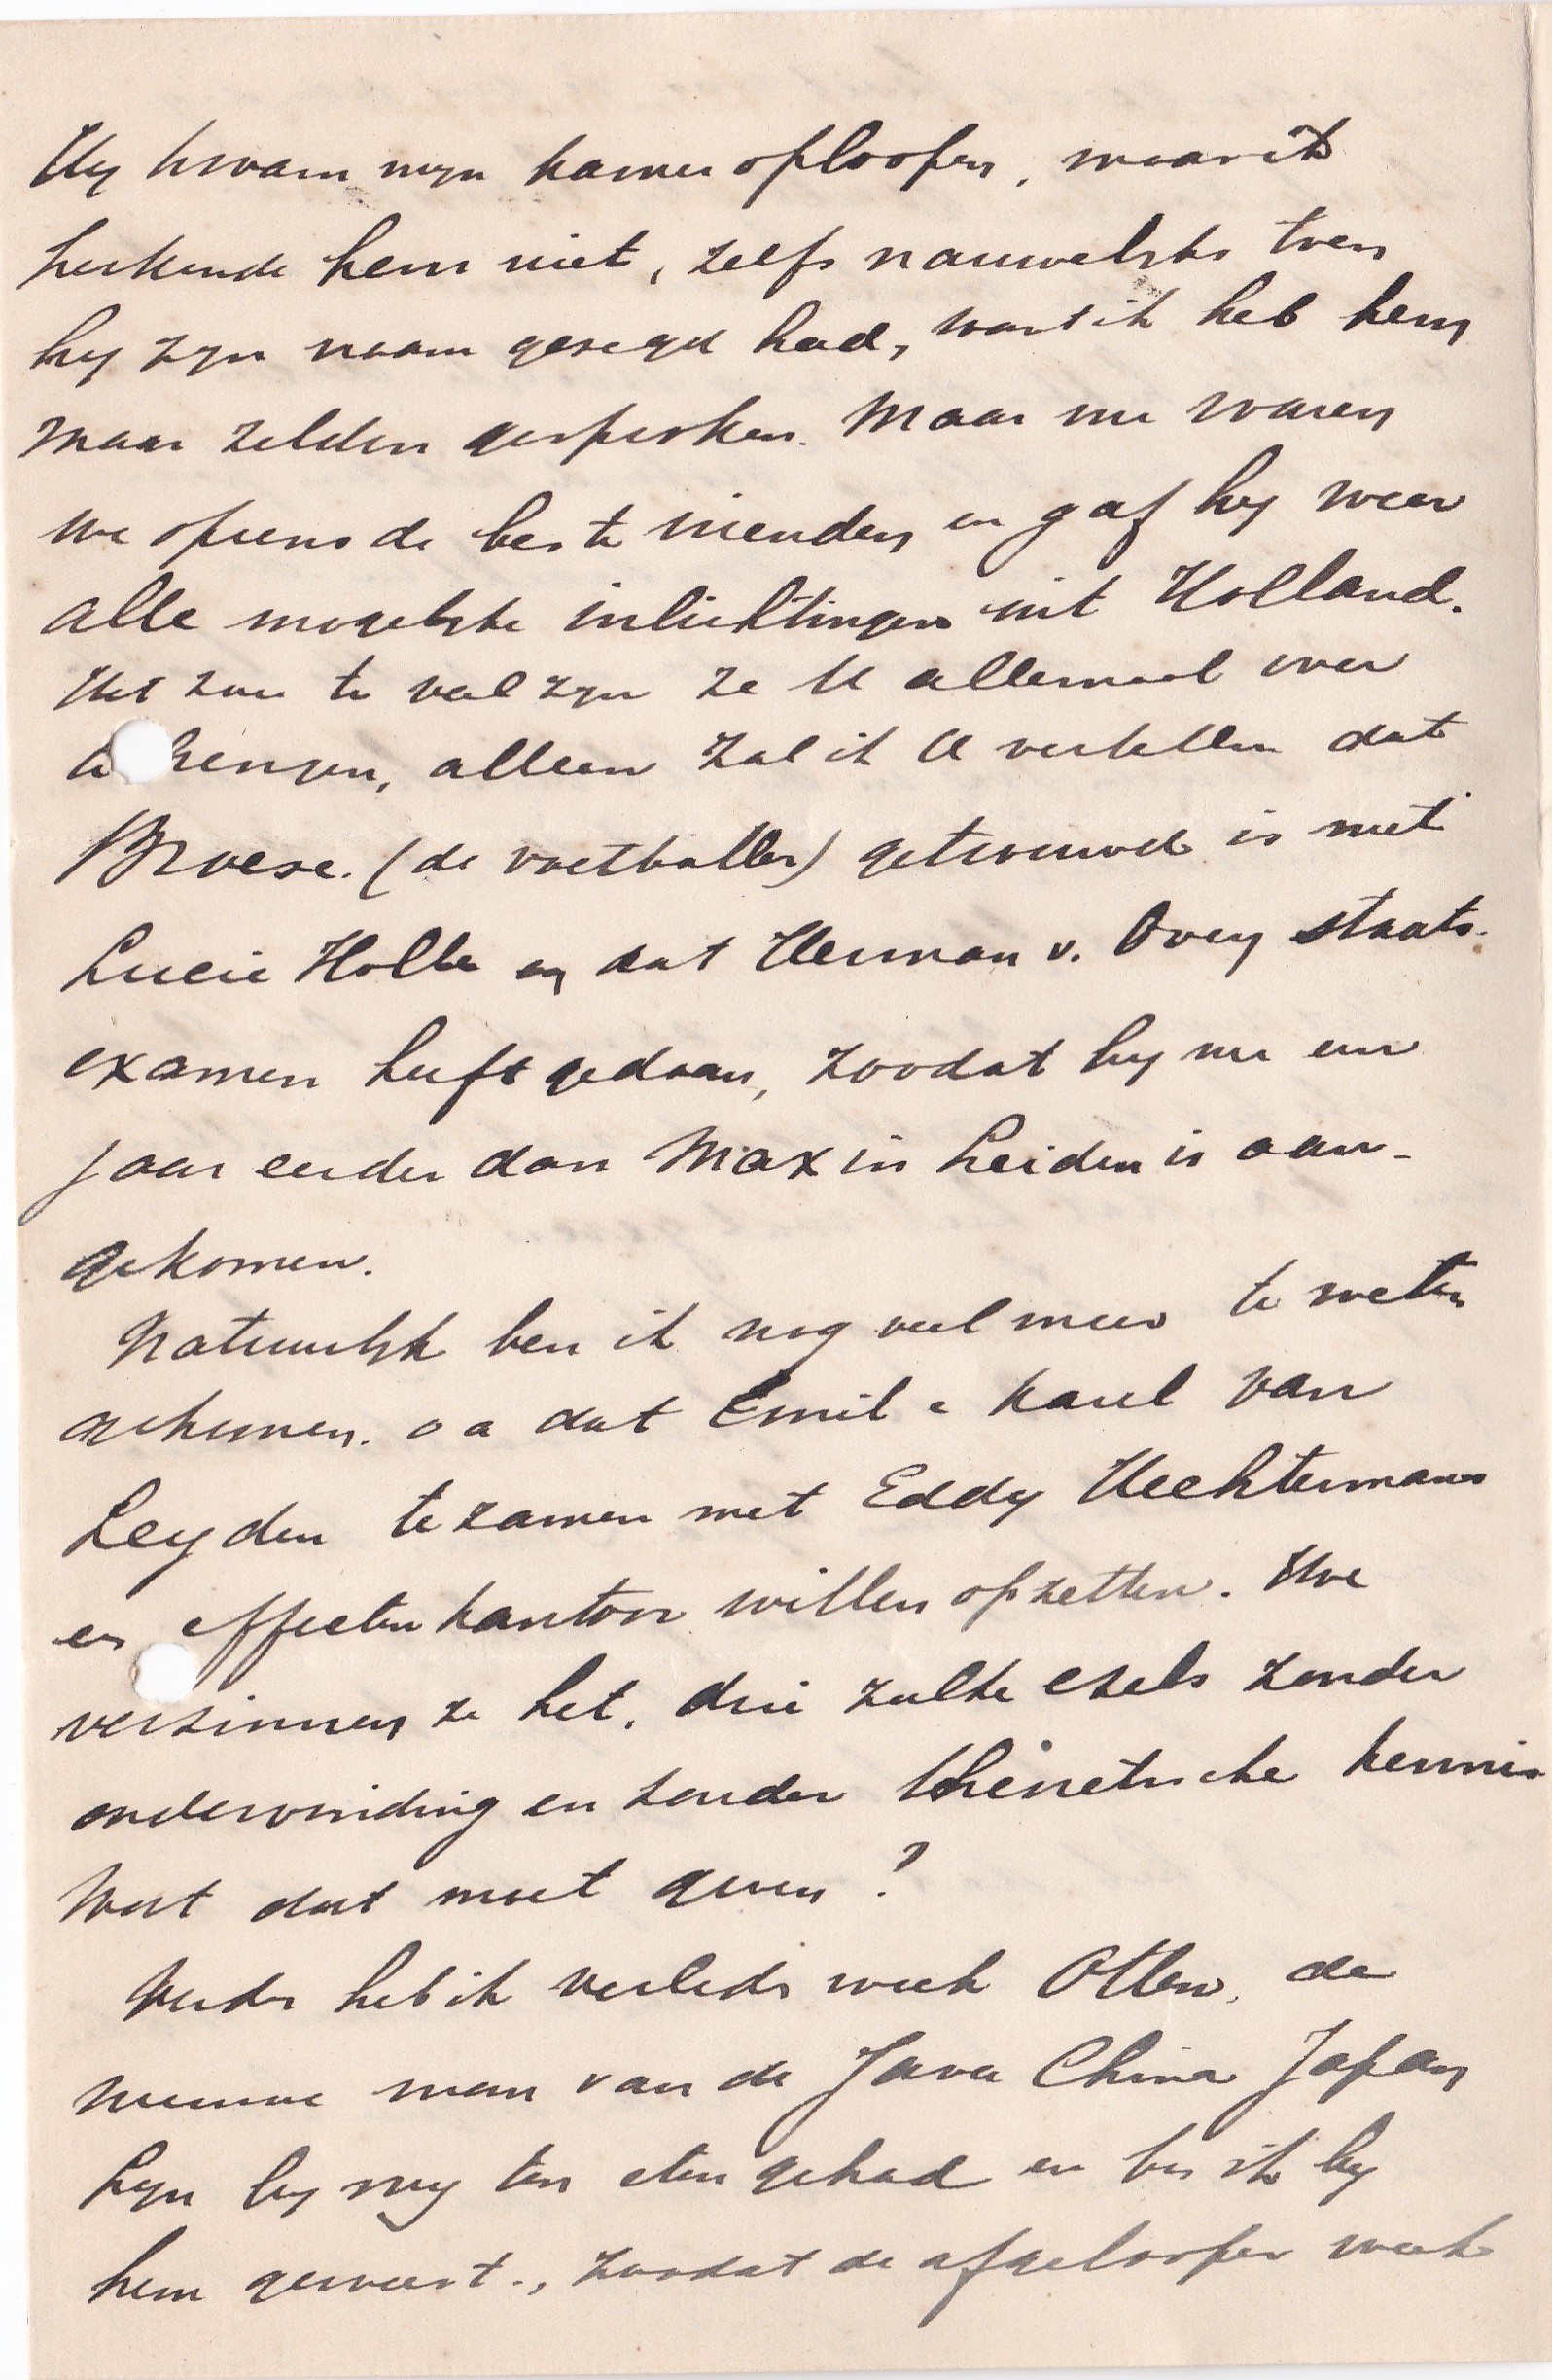 Hij kwam mijn kamer oploopen, maar ik
herkende hem niet, zelfs nauwelijks toen
hij zijn naam gezegd had, want ik heb hem
maar zelden gesproken. Maar nu waren
we opeens de beste vrienden en gaf hij weer
alle mogelijke inlichtingen uit Holland.
Het zou te veel zijn ze U allemaal over
te brengen, alleen zal ik U vertellen dat
Broese. (de voetballer) getrouwd is met
Lucie Holle en dat Herman v. Oven staats-
examen heeft gedaan, zoodat hij nu een
jaar eerder dan Max in Leiden is aan-
gekomen.
Natuurlijk ben ik nog veel meer te weten
gekomen. o a dat Emil & Karel van
Leyden tezamen met Eddy Hechtermans
en effectenkantoor willen opzetten. Hoe
verzinnen ze het, drie zulke ezels zonder
ondervinding en zonder theoretische kennis
Wat dat moet geven?
Verder heb ik verleden week Otten, de
nieuwe man van de Java China Japan
Lijn bij mij ten eten gehad en ben ik bij
hem geweest., zoodat de afgeloopen week